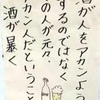 酒が人をアカンよう
するのではなく
の人が元々
カン人だということ
酒が暴く